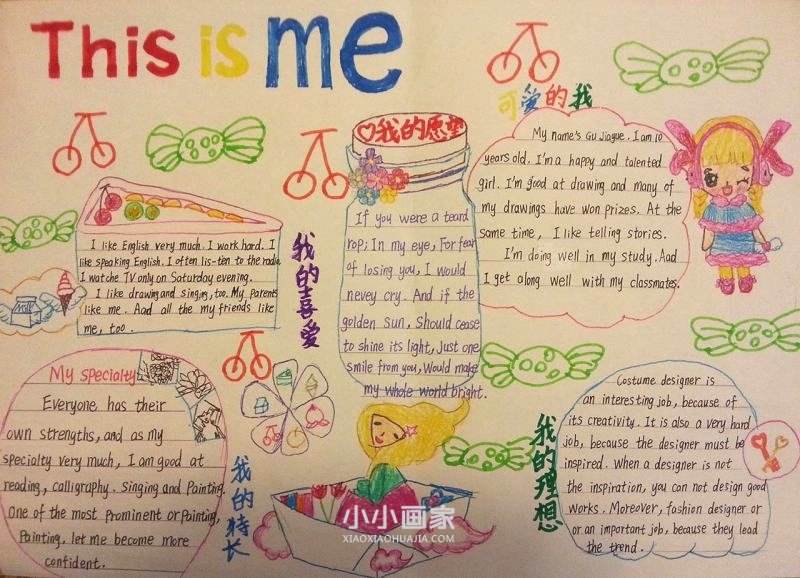 This is me
可爱的我
My name's Gu Jiayue. I am 10
years old. I'm a happy and talented
girl. I'm good at drawing and many of
my drawings have won prizes. At the
same time, I like telling stories.
I'm doing well in my study. And
I get along well with my classmates.
我的愿望
If you were a teard
rop; In my eye, For fear
of losing you, I would
nevey cry. And if the
golden sun, Should cease
to shine its light, Just one
smile from you, Would make
my whole world bright.
I like English very much. I work hard. I
like speaking English. I often lis-ten to the radio
I watch TV only on Saturday evening.
I like drawing and singing, too. My parents
like me. Aad all the my friends like
me, too.
我的喜爱
Milk
My specialty
Everyone has their
own strengths, and as my
specialty very much, I am good at
reading, calligraphy. Singing and Painting.
One of the most prominent or Painting,
Painting, let me become more
confident.
我的特长
我的理想
Costume designer is
an interesting job, because of
its creativity. It is also a very hard
job, because the designer must be
inspired. When a designer is not
the inspiration, you can not design good
works. Moreover, fashion designer or
or an important job, because they lead
the trend.
小小画家
XIAOXIAOHUAJIA.COM